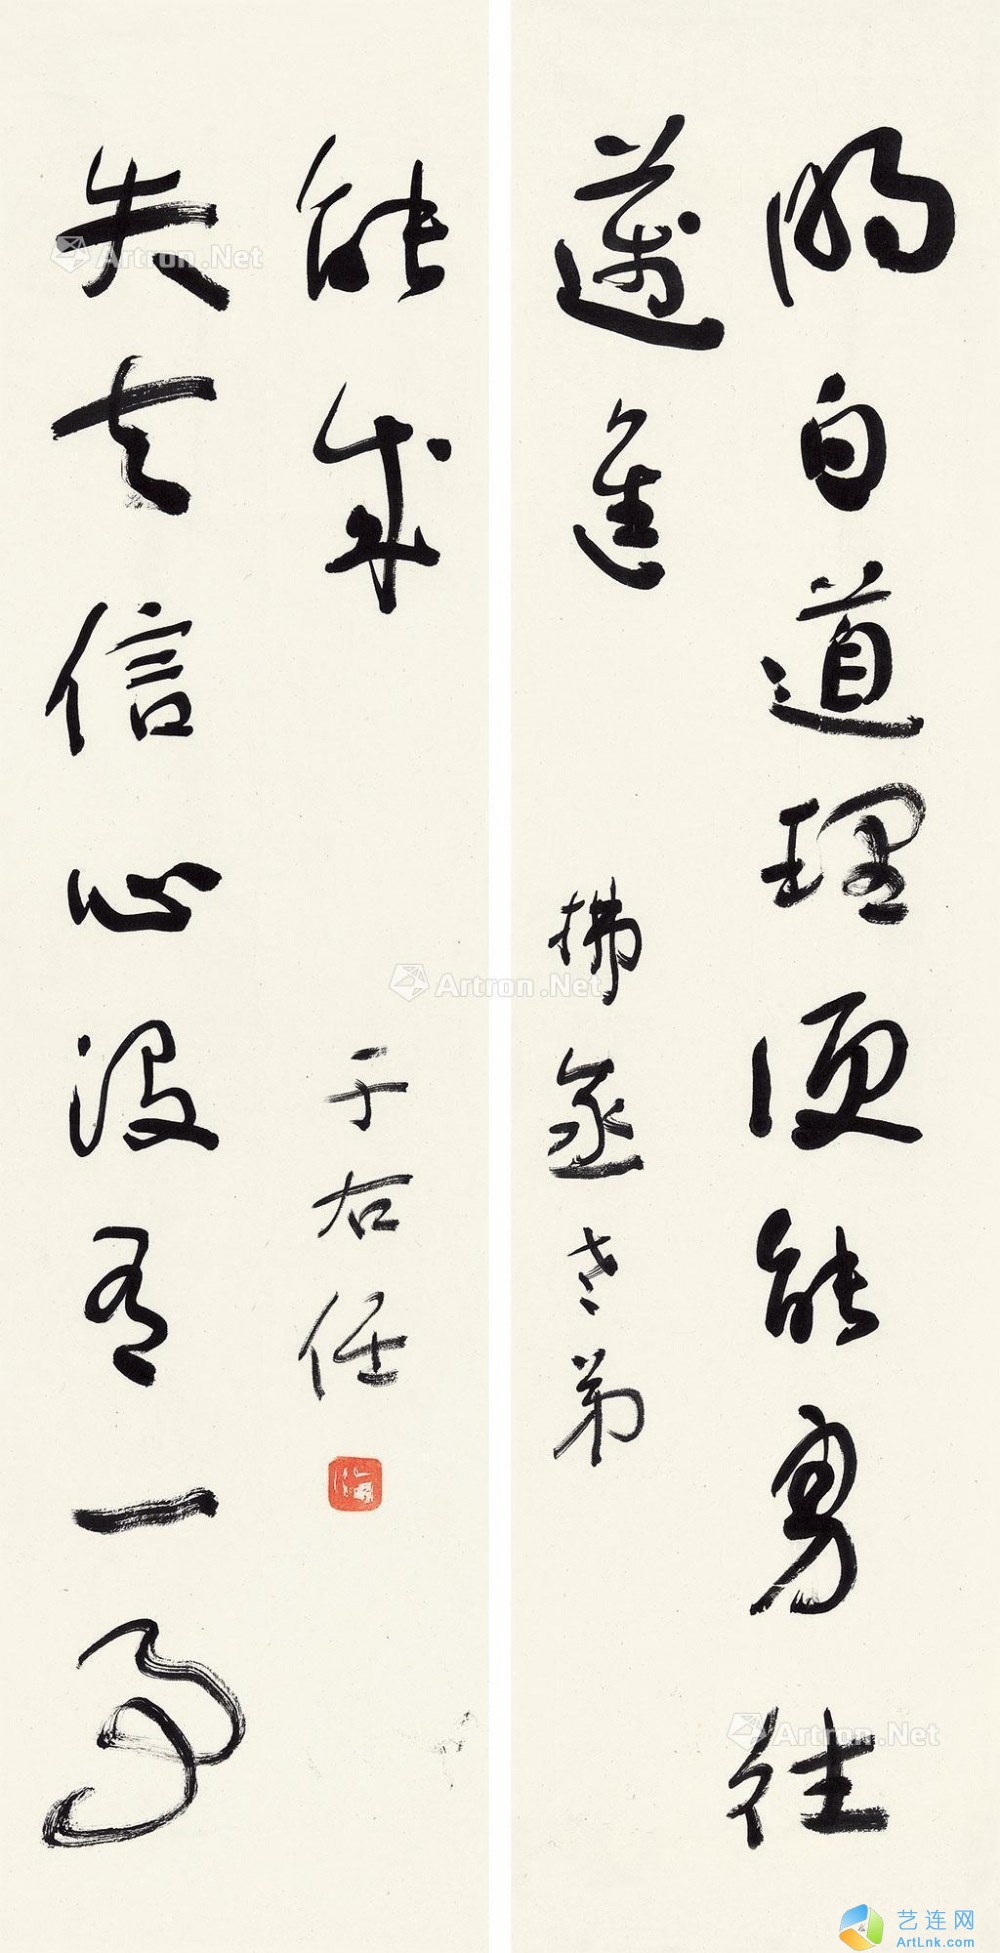 明白道理便能勇往
邁進
拂老弟
失去信心沒有一事
能成
于右任
Artron.Net
Artron.Net
Artron.Net
艺连网
ArtLnk.com